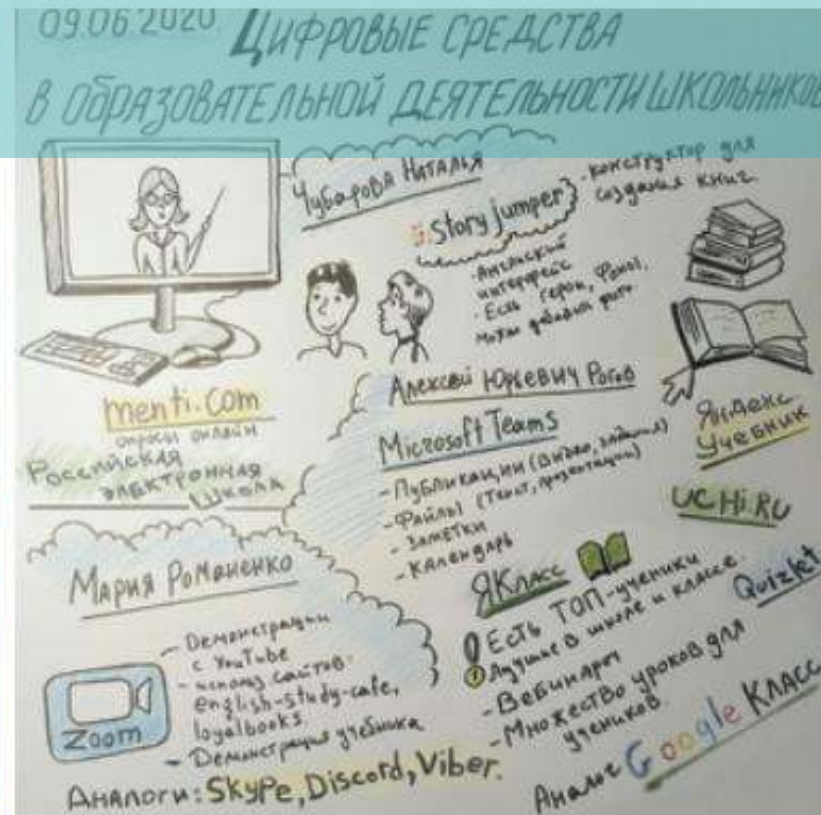 09.06.2020 Цифровые средства
в образовательной деятельности школьников
Чубарова Наталья
story jumper
- конструктор для
создания книг
- Английский
интерфейс
- Есть герои, фоны,
можно добавить фото
menti.com
опросы онлайн
Российская
электронная
школа
Алексей Юрьевич Рогов
Microsoft Teams
- Публикации (видео, задания)
- Файлы (текст, презентации)
- Заметки
- Календарь
Яндекс
Учебник
UCHi.RU
Мария Романенко
Zoom
- Демонстрации
с YouTube
- использ сайтов:
english-study-cafe,
loyalbooks
- Демонстрация учебника
Аналоги: Skype, Discord, Viber.
ЯКласс
Есть ТОП-ученики
Лучшие в школе и классе.
- Вебинары
- Множество уроков для
учеников.
Quizlet
Аналог Google Класс